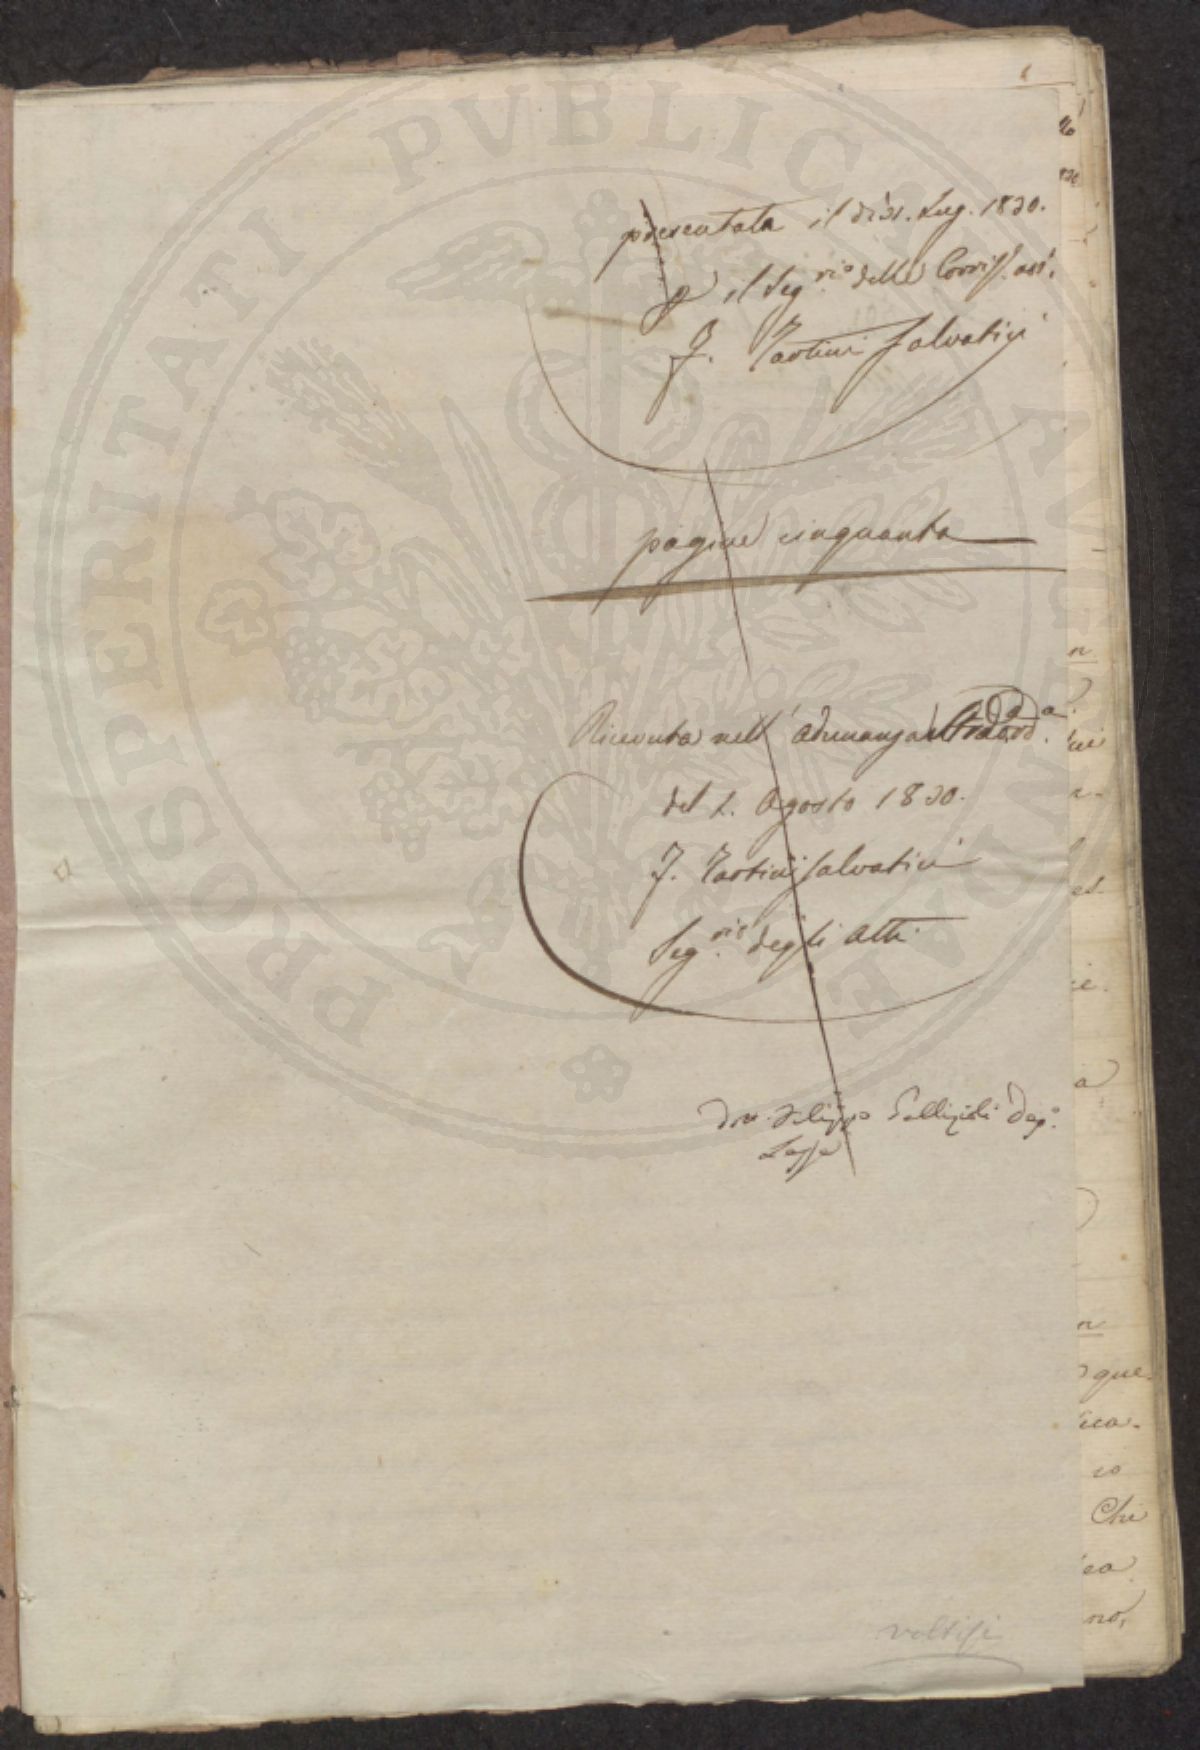 PROSPERITATI PVBLICAE AVGENDAE
presentata il dì 31. Lug. 1830.
p il Seg.rio delle Corrisp.
F. Tartini Salvatici
pagine cinquanta
Ricevuta nell' adunanza
del 1. Agosto 1830.
F. Tartini Salvatici
Seg.rio degli Atti
Dre. Filippo Gallizioli Dep.o
Lesse
voltisi
n
que
ica-
io
Che
ea
no,